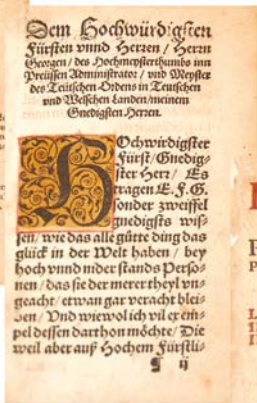 Dem Hochwürdigsten
Fürsten vnnd Herren / Herrn
Georgen / des Hochmeysterthumbs inn
Preüssen Administrator / vnd Meyster
des Teütschen Ordens in Teutschen
vnd Welschen Landen / meinem
Gnedigsten Herren.
HOchwirdigster
Fürst / Gnedig-
ster Herr / Es
tragen E. F. G.
sonder zweiffel
gnedigsts wis-
sen / wie das alle gütte ding das
glück in der Welt haben / bey
hoch vnnd nider stands Perso-
nen / das sie der merer theyl vn-
geacht / etwan gar veracht blei-
ben / Vnd wiewol ich vil exem-
pel dessen darthon möchte / Die
weil aber auß Hochem Fürstli-
¶ ij